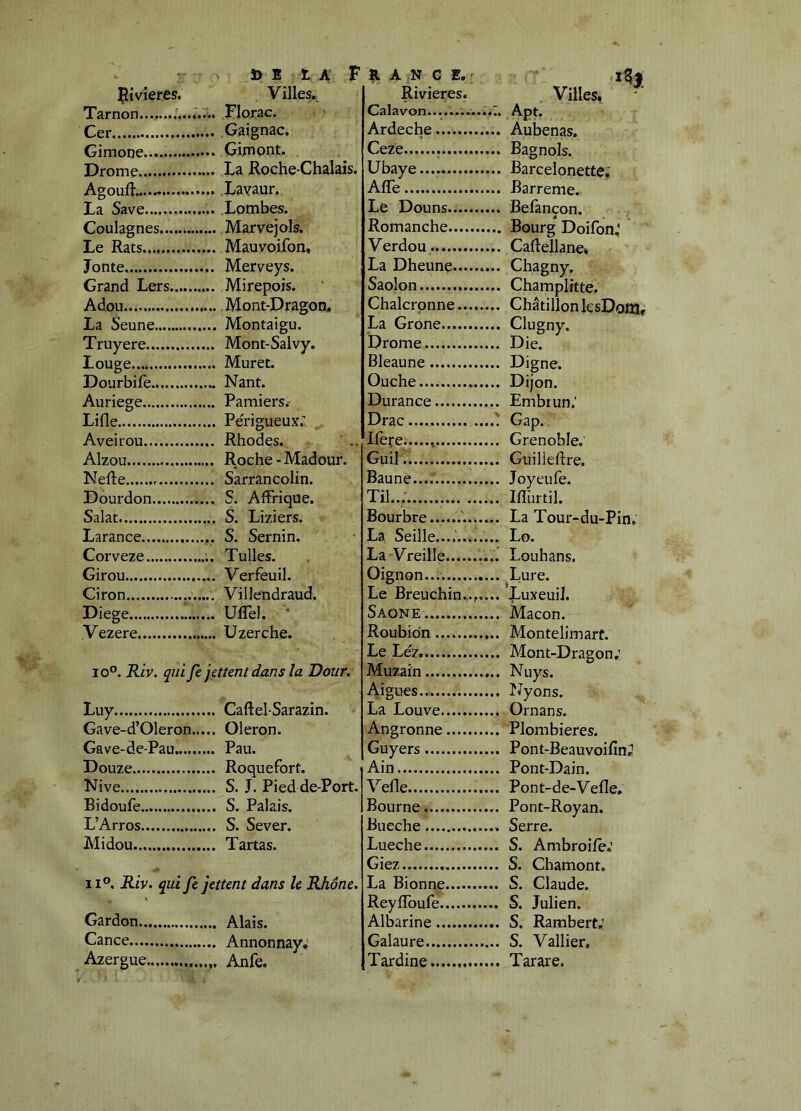 DE LA FRANCE. 183
Rivieres. Villes.
Tarnon.............. Florac.
Cer.................... Gaignac.
Gimone................ Gimont.
Drome................. La Roche-Chalais.
Agouſt................ Lavaur.
La Save............... Lombes.
Coulagnes............. Marvejols.
Le Rats............... Mauvoiſon.
Jonte.................. Merveys.
Grand Lers.......... Mirepois.
Adou................... Mont-Dragon.
La Seune.............. Montaigu.
Truyere............... Mont-Salvy.
Louge.................. Muret.
Dourbiſe.............. Nant.
Auriege................ Pamiers.
Liſle.................... Périgueux.
Aveirou............... Rhodes.
Alzou.................. Roche-Madour.
Neſte.................. Sarrancolin.
Dourdon.............. S. Affrique.
Salat................... S. Liziers.
Larance............... S. Sernin.
Corveze............... Tulles.
Girou.................. Verfeuil.
Ciron.................. Villendraud.
Diege.................. Uſſel.
Vezere................. Uzerche.
10°. Riv. qui ſe jettent dans la Dour.
Luy..................... Caſtel-Sarazin.
Gave-d'Oleron..... Oleron.
Gave-de-Pau......... Pau.
Douze................. Roquefort.
Nive.................... S. J. Pied de-Port.
Bidouſe................ S. Palais.
L'Arros................ S. Sever.
Midou................. Tartas.
11°. Riv. qui ſe jettent dans le Rhône.
Gardon................ Alais.
Cance.................. Annonnay.
Azergue............... Anſe.
Rivieres. Villes.
Calavon.............. Apt.
Ardeche............. Aubenas.
Ceze................... Bagnols.
Ubaye................ Barcelonette.
Aſſe................... Barreme.
Le Douns........... Beſançon.
Romanche.......... Bourg Doiſon.
Verdou.............. Caſtellane.
La Dheune......... Chagny.
Saolon................ Champlitte.
Chalcronne........ Châtillon lesDom,
La Grone........... Clugny.
Drome............... Die.
Bleaune............. Digne.
Ouche................ Dijon.
Durance............ Embrun.
Drac.................. Gap.
Iſere.................. Grenoble.
Guil................... Guilleſtre.
Baune................ Joyeuſe.
Til..................... Iſſurtil.
Bourbre............. La Tour-du-Pin.
La Seille............ Lo.
La Vreille.......... Louhans.
Oignon.............. Lure.
Le Breuchin....... Luxeuil.
SAONE............... Macon.
Roubion............ Montelimart.
Le Léz............... Mont-Dragon.
Muzain.............. Nuys.
Aigues............... Nyons.
La Louve........... Ornans.
Angronne.......... Plombieres.
Guyers............... Pont-Beauvoiſin.
Ain.................... Pont-Dain.
Veſle.................. Pont-de-Veſle.
Bourne.............. Pont-Royan.
Bueche.............. Serre.
Lueche.............. S. Ambroiſe.
Giez................... S. Chamont.
La Bionne.......... S. Claude.
Reyſſouſe........... S. Julien.
Albarine............ S. Rambert.
Galaure.............. S. Vallier.
Tardine............. Tarare.